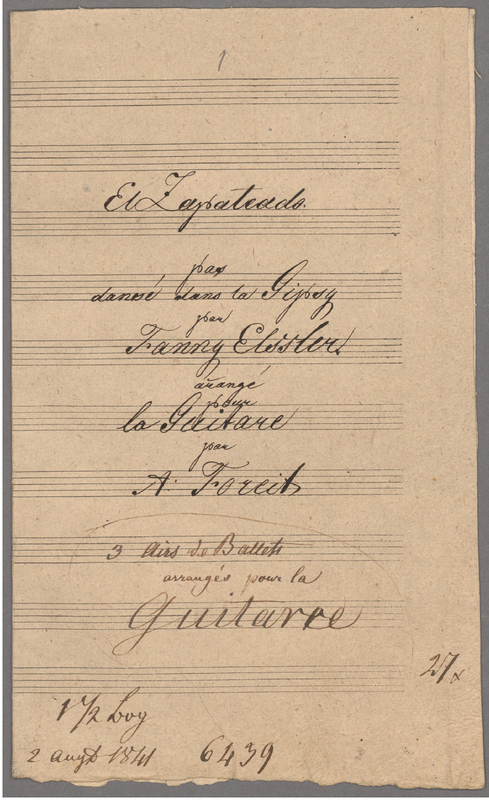 1
El Zapateado.
pas
dansé dans la Gipsy
par
Fanny Elssler.
arrangé
pour
la Guitare
par
A. Foreit
3 Airs de Ballets
arrangés pour la
Guitarre
27
1 1/2 bog
2 augt 1841 6439